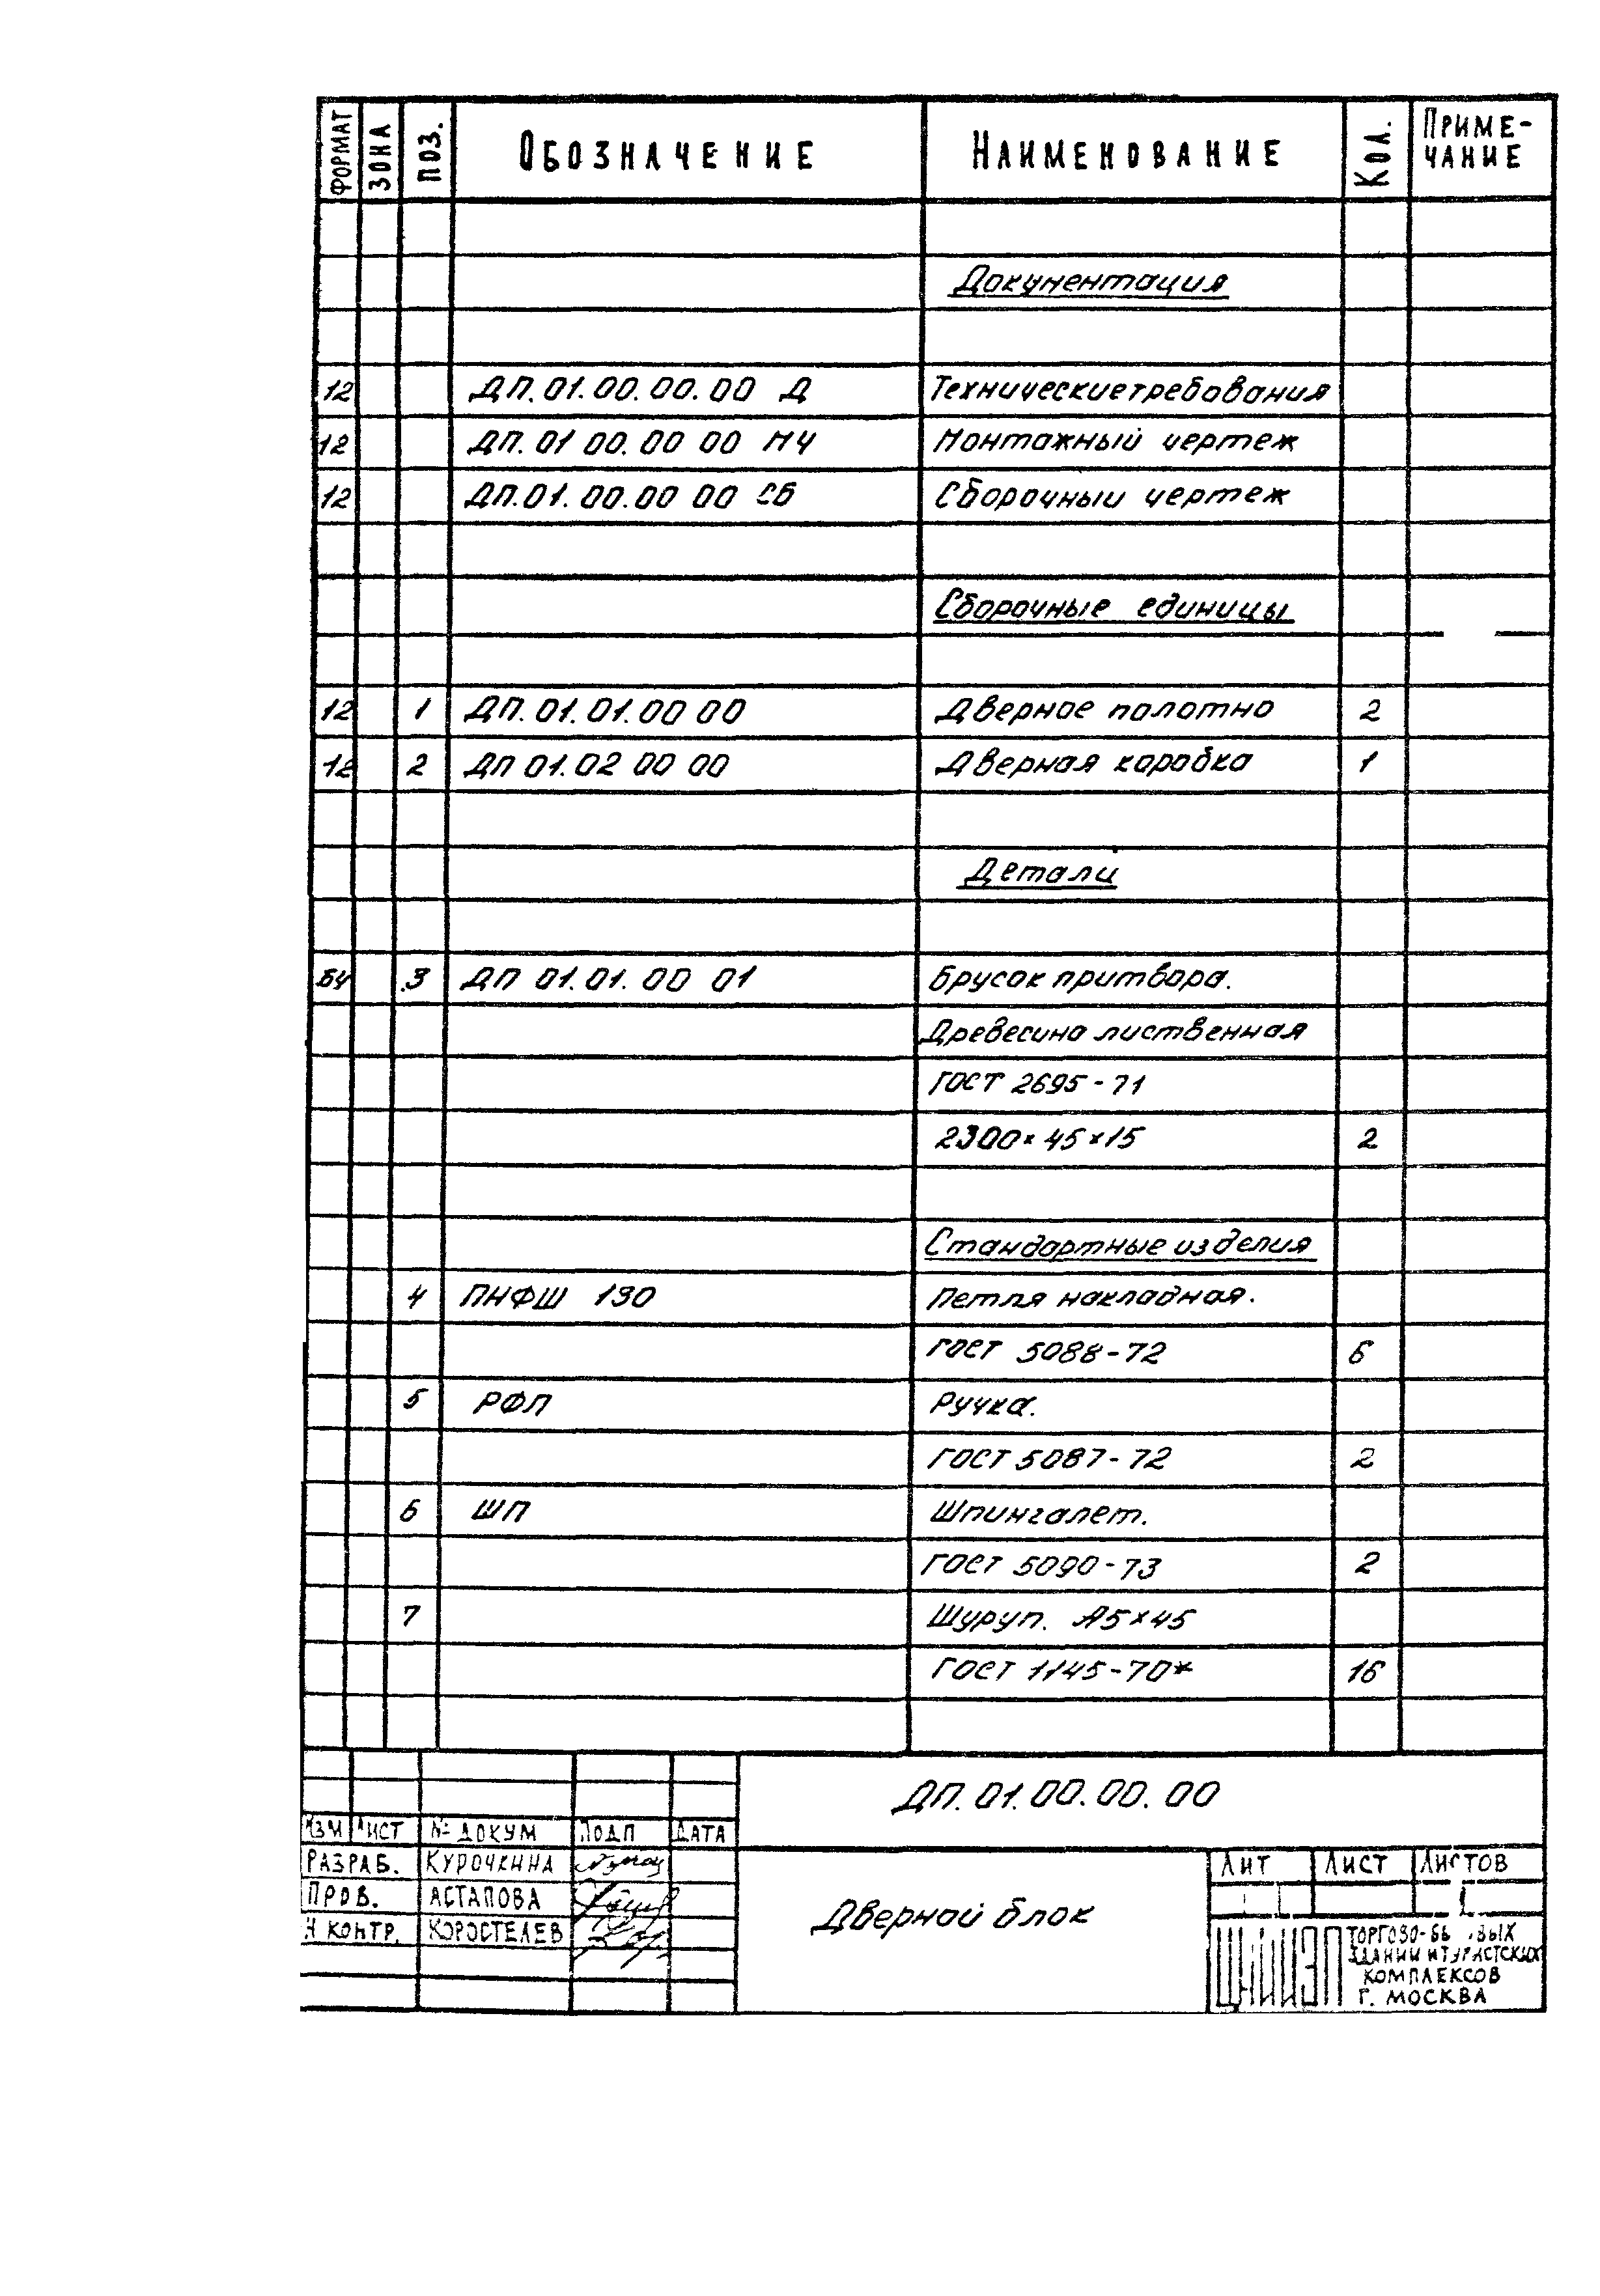 ФОРМАТ ЗОНА ПОЗ. ОБОЗНАЧЕНИЕ НАИМЕНОВАНИЕ КОЛ. ПРИМЕ-
ЧАНИЕ
Документация
12 ДП.01.00.00.00 Д Технические требования
12 ДП.01 00.00 00 МЧ Монтажный чертеж
12 ДП.01.00.00 00 СБ Сборочный чертеж
Сборочные единицы
12 1 ДП.01.01.00 00 Дверное полотно 2
12 2 ДП 01.02 00 00 Дверная коробка 1
Детали
БЧ 3 ДП 01.01.00 01 Брусок притвора.
Древесина лиственная
ГОСТ 2695-71
2300×45×15 2
Стандартные изделия
4 ПНФШ 130 Петля накладная.
ГОСТ 5088-72 6
5 РФП Ручка.
ГОСТ 5087-72 2
6 ШП Шпингалет.
ГОСТ 5090-73 2
7 Шуруп. А5×45
ГОСТ 1145-70* 16
ДП.01.00.00.00
ИЗМ ЛИСТ № ДОКУМ ПОДП ДАТА
РАЗРАБ. КУРОЧКИНА
ПРОВ. АСТАПОВА
Н КОНТР. КОРОСТЕЛЕВ
Дверной блок
ЛИТ ЛИСТ ЛИСТОВ
1
ЦНИИЭП
ТОРГОВО-БЫТОВЫХ
ЗДАНИЙ И ТУРИСТСКИХ
КОМПЛЕКСОВ
Г. МОСКВА